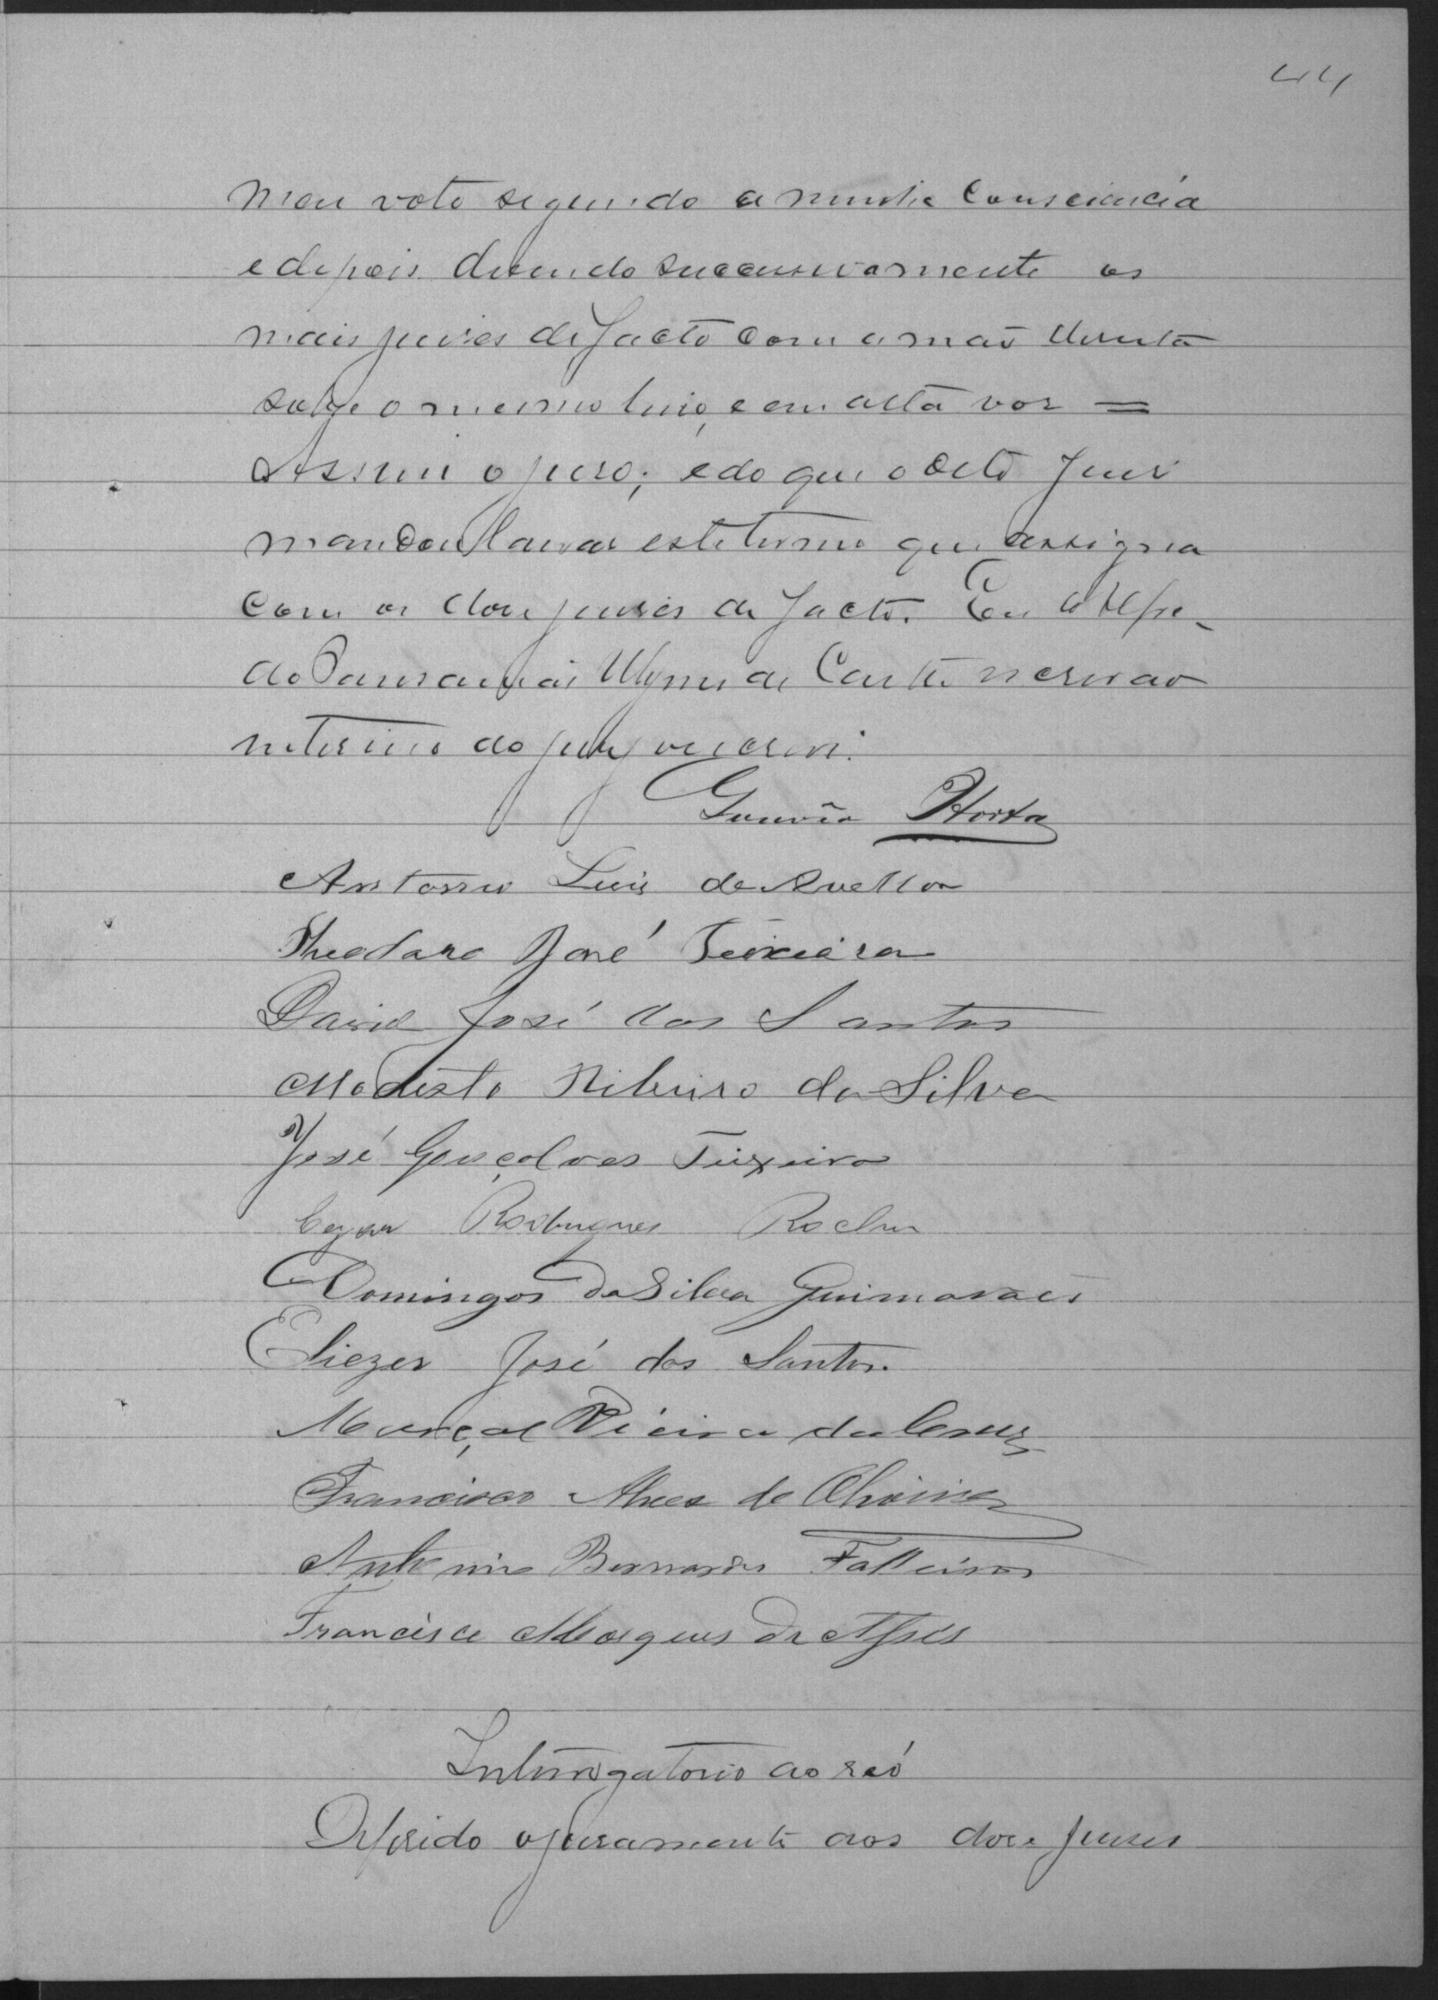 44
meu voto segundo a minha consciencia
e depois dizendo successivamente os
mais juises de facto com a mão direita
sobre o mesmo livro, e em alta voz =
Assim o juro; e do que o dito Juis
mandou lavrar este termo que assigna
com os dose juises de facto. Eu
do Ulysses de escrivão
interino do jury o escrevi.
Gouvêa Horta
Antonio Luis de Avellar
Theodoro José Teixeira
David José dos Santos
Modesto Ribeiro da Silva
José Gonçalves Teixeira
Cezar Rodrigues Rocha
Domingos da Silva Guimarães
Eliezer José dos Santos.
Marçal Vieira da Cruz
Francisco Alves de Oliveira
Antonio Bernardes Falleiros
Francisco Marques de Assis
Interrogatorio ao réo
Deferido o juramento aos dose juises